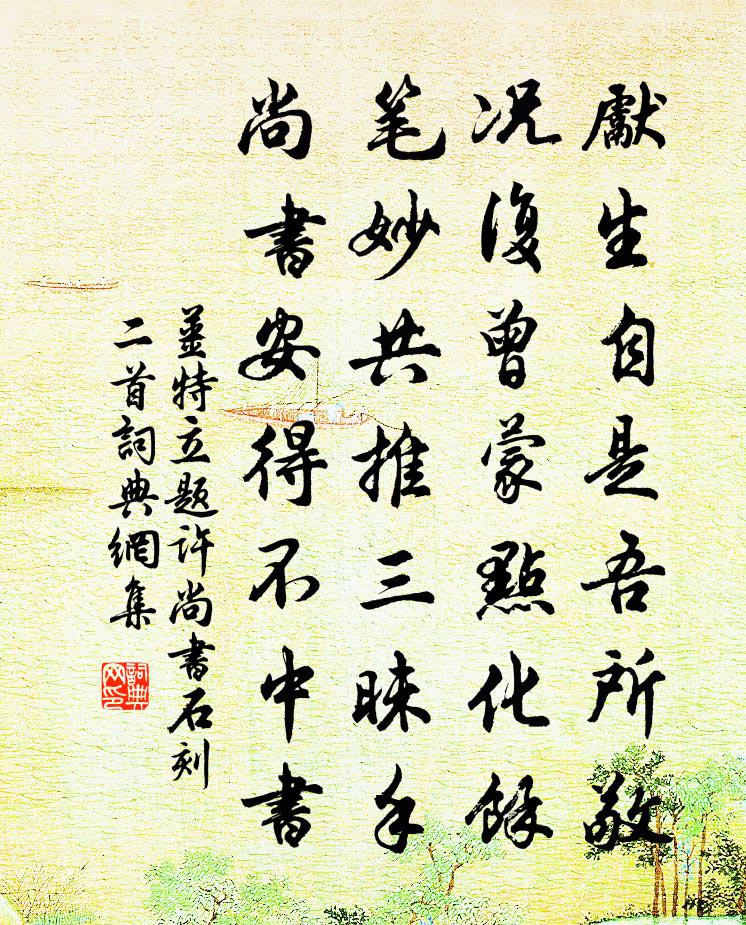 獻生自是吾所敬
况復曾蒙點化餘
笔妙共推三昧手
尚書安得不中書
薑特立题许尚書石刻
二首詞典網集
詞典网印